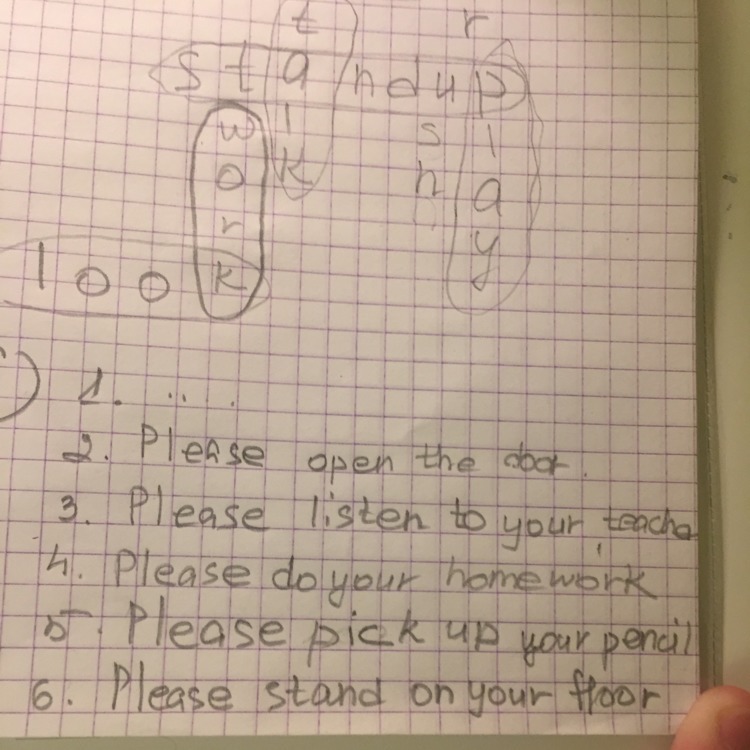 t r
s t a n d u p
w l s l
o k h a
r y
l o o k
1. ....
2. Please open the door.
3. Please listen to your teache
4. Please do your homework
5. Please pick up your pencil
6. Please stand on your floor